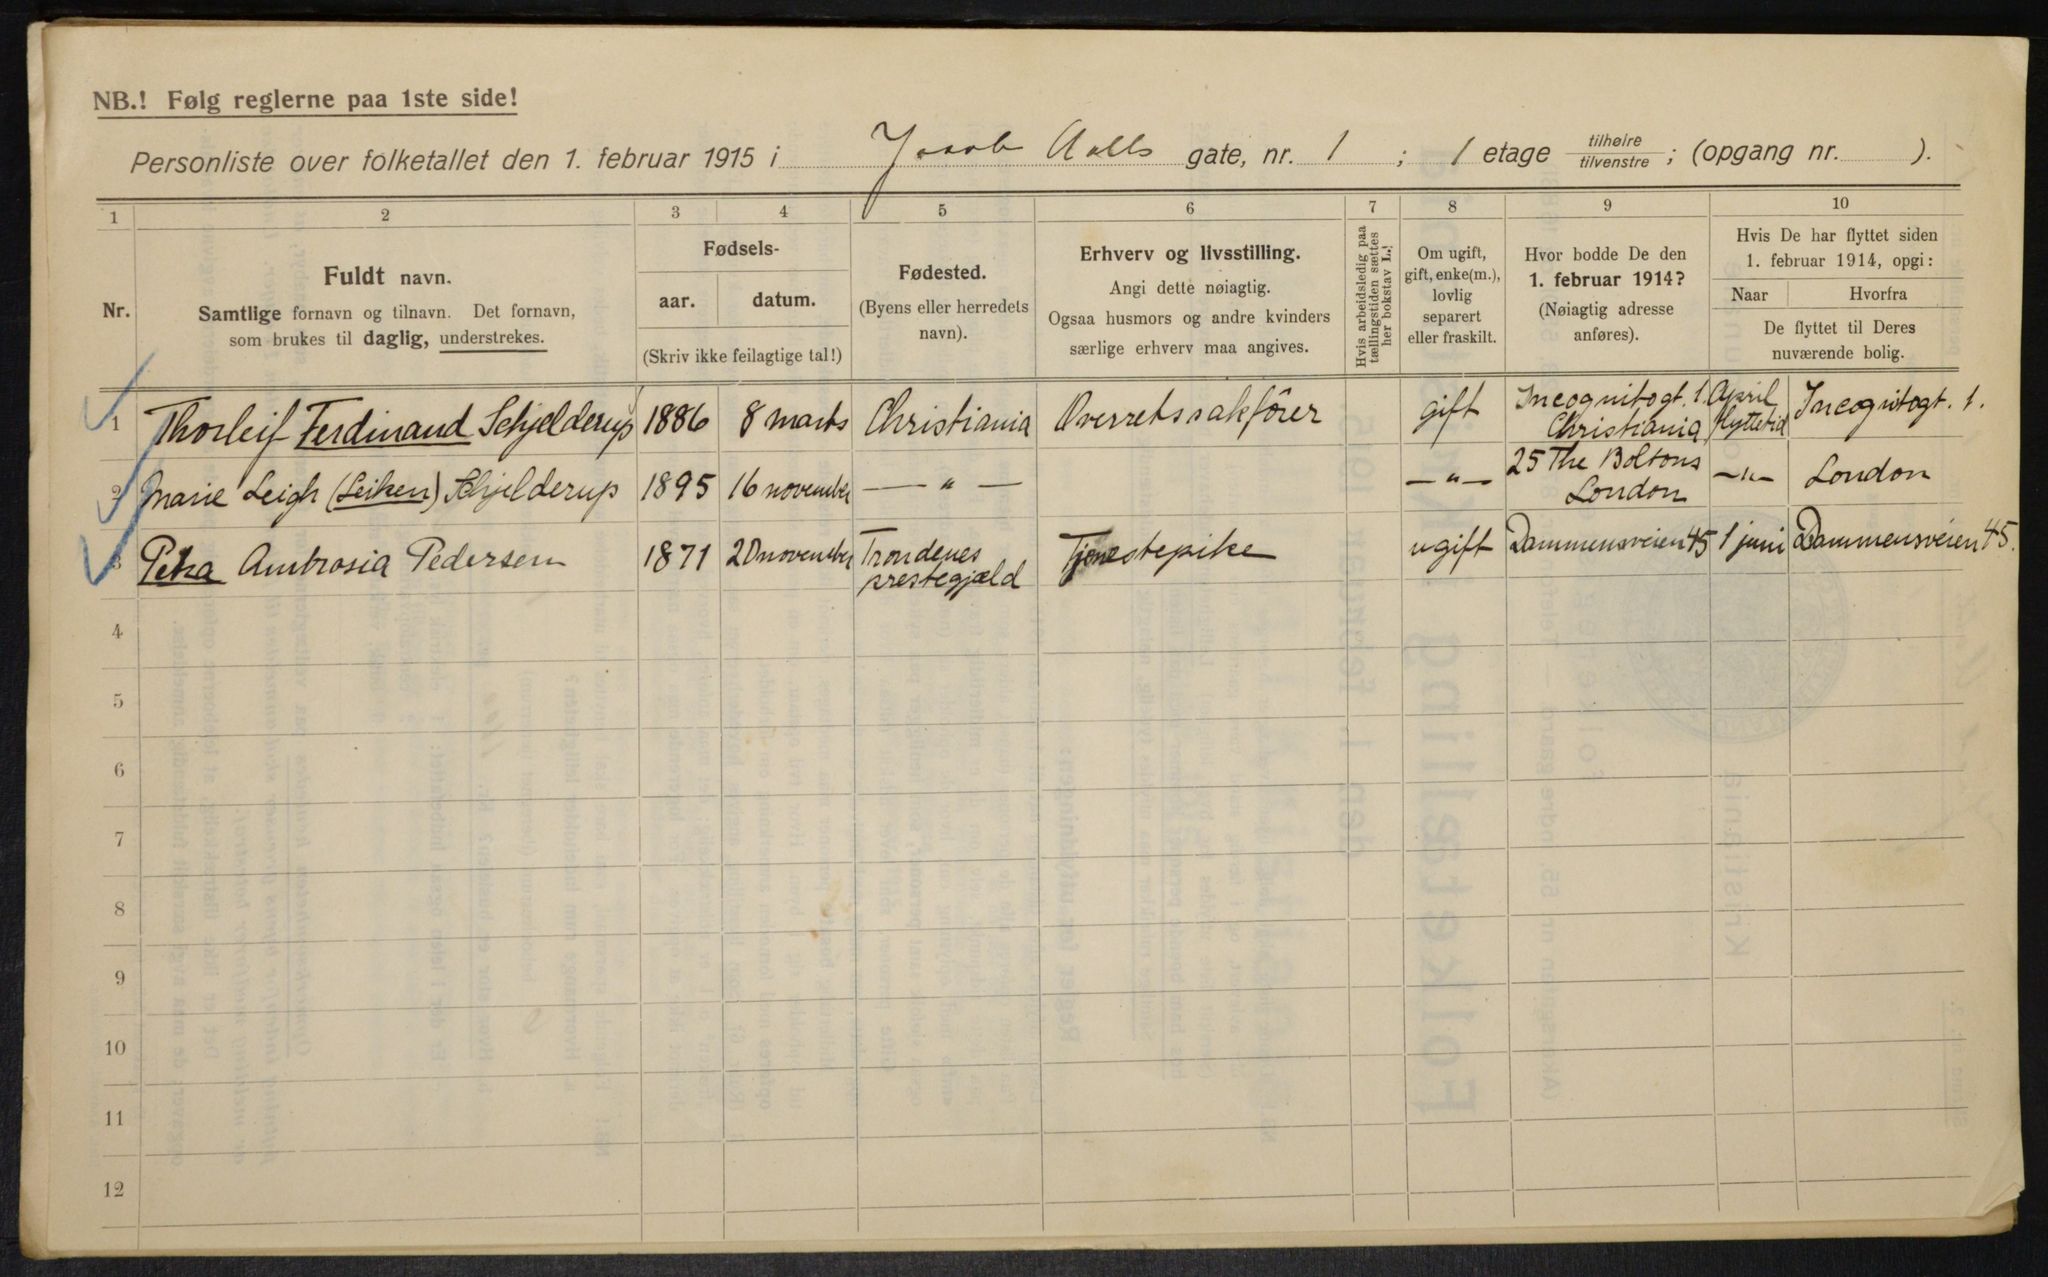 NB.! Følg reglerne paa 1ste side!
Personliste over folketallet den 1. februar 1915 i Jacob Aalls gate, nr. 1 ; 1 etage tilhøire tilvenstre ; (opgang nr. ).
1 2 3 4 5 6 7 8 9 10
Nr.
Fuldt navn.
Samtlige fornavn og tilnavn. Det fornavn,
som brukes til daglig, understrekes.
Fødsels-
aar. datum.
(Skriv ikke feilagtige tal!)
Fødested.
(Byens eller herredets
navn).
Erhverv og livsstilling.
Angi dette nøiagtig.
Ogsaa husmors og andre kvinders
særlige erhverv maa angives.
Hvis arbeidsledig paa
tællingstiden sættes
her bokstav L.!
Om ugift,
gift, enke(m.),
lovlig
separert
eller fraskilt.
Hvor bodde De den
1. februar 1914?
(Nøiagtig adresse
anføres).
Hvis De har flyttet siden
1. februar 1914, opgi:
Naar Hvorfra
De flyttet til Deres
nuværende bolig.
1 Thorleif Ferdinand Schjelderup 1886 8 marts Christiania Overretssakfører gift Incognitogt. 1. Christiania April flyttetid Incognitogt. 1.
2 Marie Leigh (Leiken) Schjelderup 1895 16 november — „ — — „ — 25 The Boltons London — „ — London
3 Petra Ambrosia Pedersen 1871 20 november Trondenes prestegjæld Tjenestepike ugift Drammensveien 45 1 juni Drammensveien 45.
4
5
6
7
8
9
10
11
12